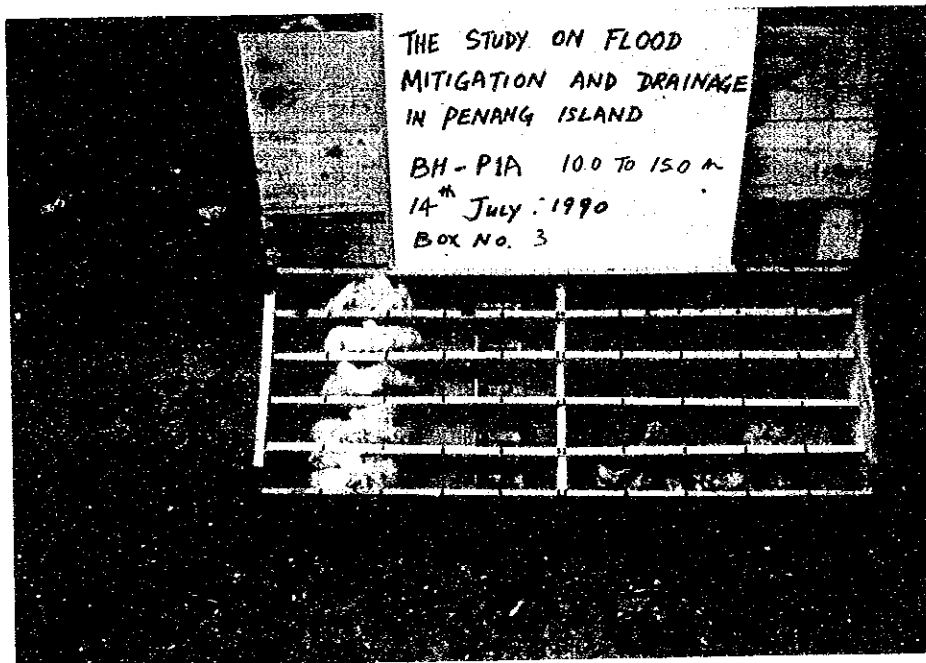 THE STUDY ON FLOOD
MITIGATION AND DRAINAGE
IN PENANG ISLAND
BH - P1A 10.0 TO 15.0 m
14th July. 1990
BOX NO. 3